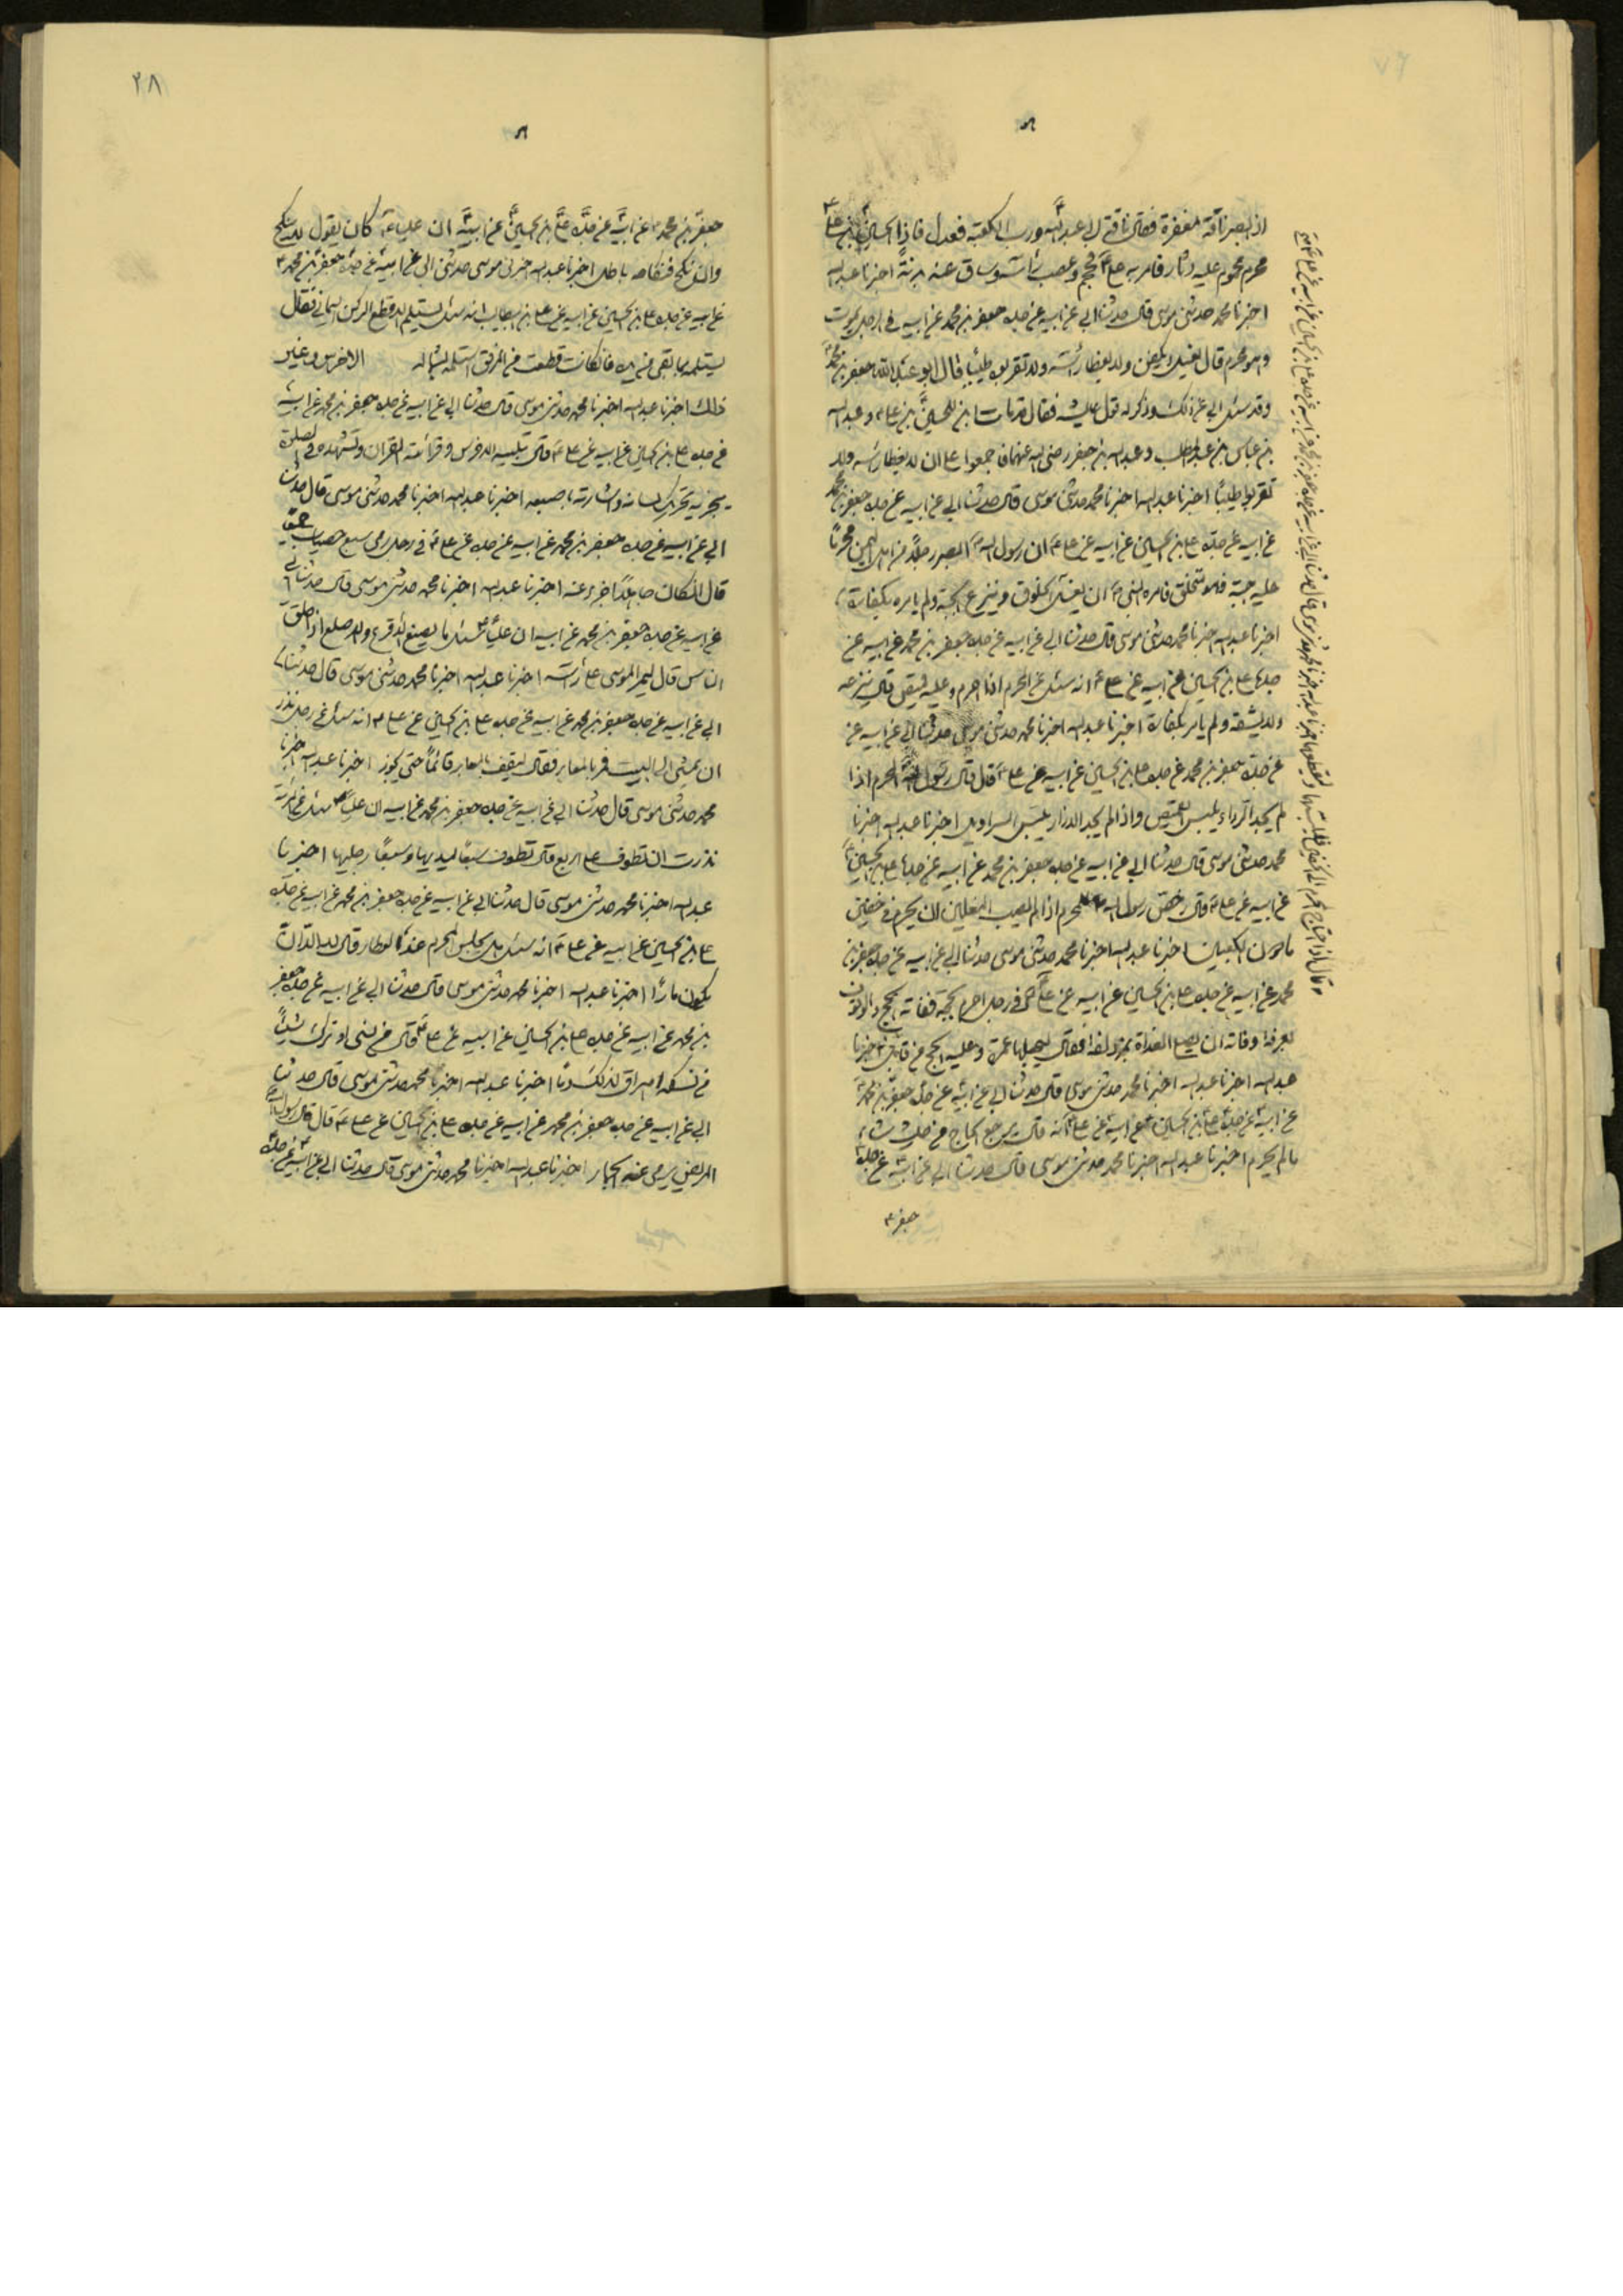 ٧٦
اذ ابصر ناقة مغفرة فقال ناقة لابى عبدالله ورب الكعبه فعدل فاذا الحسين بن على
محرم محموم عليه دثار فامر به على فحجم وعصب راسه وساق عنه بدنة اخبرنا عبدالله
اخبرنا محمد حدثنى موسى قال حدثنا ابى عن ابيه عن جده جعفر بن محمد عن ابيه فى رجل يموت
وهو محرم قال يغسل ويكفن ولا يغطا راسه ولا تقربوه طيبًا قال ابو عبد الله جعفر بن محمد
وقد سئل ابى عن ذلك وذكر له قول عايشه فقال قد مات ابن للحسين بن على وعبدالله
بن عباس بن عبدالمطلب وعبدالله بن جعفر رضى الله عنهما فاجمعوا على ان لا يغطا راسه ولا
تقربوا طيبًا اخبرنا عبدالله اخبرنا محمد حدثنى موسى قال حدثنا ابى عن ابيه عن جده جعفر بن محمد
عن ابيه عن جده على بن الحسين عن ابيه عن على ان رسول الله ابصر رجلًا من اهل اليمن محرمًا
عليه جبة فلا تتخلق فامره النبى ان يغسل الخلوق وينزع الجبة ولم يامره بكفارة
اخبرنا عبدالله اخبرنا محمد حدثنى موسى قال حدثنا ابى عن ابيه عن جده جعفر بن محمد عن ابيه عن
جده على بن الحسين عن ابيه عن على انه سئل عن المحرم اذا احرم وعليه قميص قال ينزعه
ولا يشقه ولم يامر بكفارة اخبرنا عبدالله اخبرنا محمد حدثنى موسى حدثنا ابى عن ابيه عن
عن جده جعفر بن محمد عن جده على بن الحسين عن ابيه عن على قال قال رسول الله المحرم اذا
لم يجد الرداء يلبس القميص واذا لم يجد الازار يلبس السراويل اخبرنا عبدالله اخبرنا
محمد حدثنى موسى قال حدثنا ابى عن ابيه عن جده جعفر بن محمد عن ابيه عن جده على بن الحسين
عن ابيه عن على قال رخص رسول الله للمحرم اذا لم يصب النعلين ان يحرم فى خفين
ما دون الكعبين اخبرنا عبدالله اخبرنا محمد حدثنى موسى حدثنا ابى عن ابيه عن جده جعفر بن
محمد عن ابيه عن جده على بن الحسين عن ابيه عن على فى رجل احرم بحجة ففاته الحج والوقوف
بعرفة وفاته ان يصلى الغداة بمزدلفة فقال ليجعلها عمرة وعليه الحج من قابل اخبرنا
عبدالله اخبرنا عبدالله اخبرنا محمد حدثنى موسى قال حدثنا ابى عن ابيه عن جده جعفر بن محمد
عن ابيه عن جده على بن الحسين عن ابيه عن على انه قال يرجع الحاج من حيث شاء
ما لم يحرم اخبرنا عبدالله اخبرنا محمد حدثنى موسى قال حدثنا ابى عن ابيه عن جده
جعفر
٢٨
جعفر بن محمد عن ابيه عن جده على بن الحسين عن ابيه ان عليا كان يقول لا ينكح
وان نكح فنكاحه باطل اخبرنا عبدالله اخبرنى موسى حدثنى ابى عن ابيه عن جده جعفر بن محمد
عن ابيه عن جده على بن الحسين عن ابيه عن على بن ابيطالب انه سئل يستلم الاقطع الركن اليمانى فقال
يستلمه بما بقى من يده فان كانت قطعت من المرفق استلمه بشماله الاخرس وغير
ذلك اخبرنا عبدالله اخبرنا محمد حدثنى موسى قال حدثنا ابى عن ابيه عن جده جعفر بن محمد عن ابيه
عن جده على بن الحسين عن ابيه عن على قال تلبية الاخرس وقرائته القران وتشهده فى الصلوة
يجزيه تحريك لسانه واشارته باصبعه اخبرنا عبدالله اخبرنا محمد حدثنى موسى قال حدثنا
ابى عن ابيه عن جده جعفر بن محمد عن ابيه عن جده عن على فى رجل رمى سبع حصيات جميعًا
قال ان كان جاهلًا اجزء عنه اخبرنا عبدالله اخبرنا محمد حدثنى موسى قال حدثنا ابى
عن ابيه عن جده جعفر بن محمد عن ابيه ان عليًا سئل ما يصنع الاقرع والاصلع اذا حلق
الناس قال ليمر الموسى على راسه اخبرنا عبدالله اخبرنا محمد حدثنى موسى قال حدثنا
ابى عن ابيه عن جده جعفر بن محمد عن ابيه عن جده على بن الحسين عن على انه سئل عن رجل نذر
ان يمشى الى البيت فمر بالمعابر فقال ليقف بالمعابر قائمًا حتى يجوز اخبرنا عبدالله اخبرنا
محمد حدثنى موسى قال حدثنا ابى عن ابيه عن جده جعفر بن محمد عن ابيه ان عليًا سئل عن امرئة
نذرت ان تطوف على اربع قال تطوف سبعًا ليديها وسبعًا رجليها اخبرنا
عبدالله اخبرنا محمد حدثنى موسى قال حدثنا ابى عن ابيه عن جده جعفر بن محمد عن ابيه عن جده
على بن الحسين عن ابيه عن على انه سئل هل يجلس المحرم عند العطار قال لا الا ان
يكون مارًا اخبرنا عبدالله اخبرنا محمد حدثنى موسى قال حدثنا ابى عن ابيه عن جده جعفر
بن محمد عن ابيه عن جده على بن الحسين عن ابيه عن على قال من نسى او ترك شيئًا
من نسكه اهراق لذلك دمًا اخبرنا عبدالله اخبرنا محمد حدثنى موسى قال حدثنا
ابى عن ابيه عن جده جعفر بن محمد عن ابيه عن جده على بن الحسين عن على قال قال رسول الله
المريض يرمى عنه الجمار اخبرنا عبدالله اخبرنا محمد حدثنى موسى قال حدثنا ابى عن ابيه عن جده